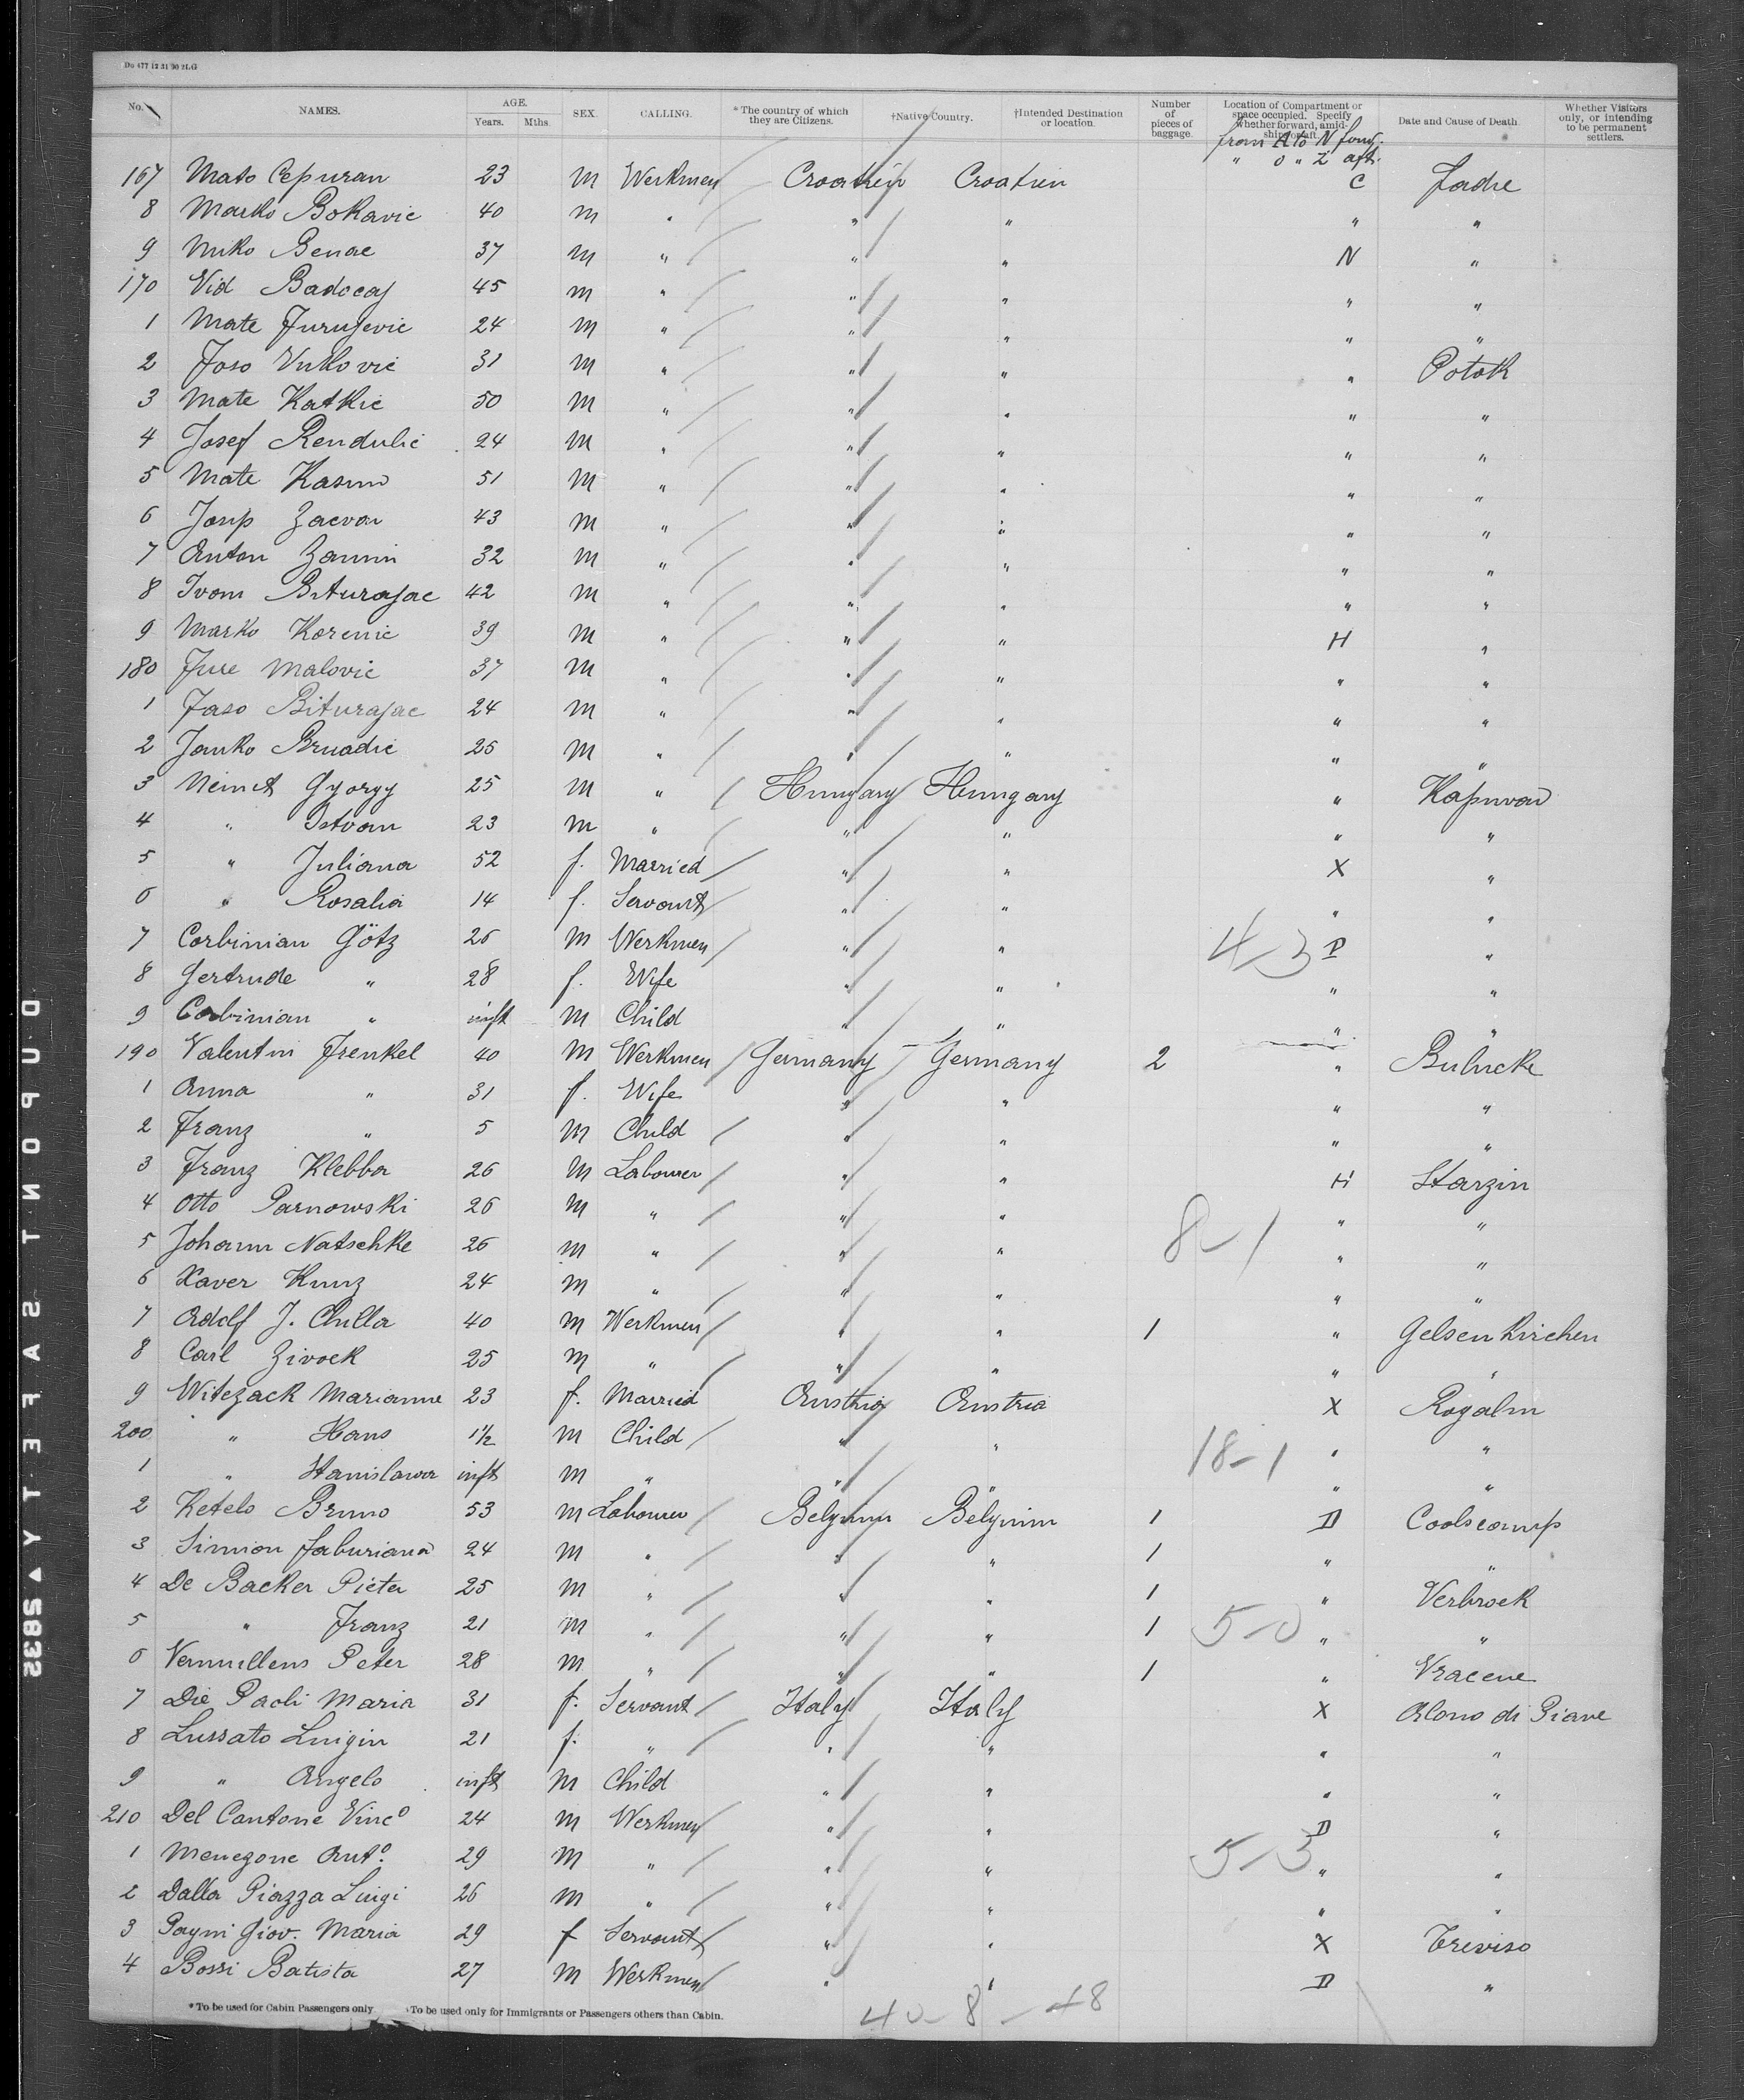 Do 477 12 31 90 2LG
No. NAMES. AGE. Years. Mths. SEX. CALLING. *The country of which they are Citizens. †Native Country. †Intended Destination or location. Number of pieces of baggage. Location of Compartment or space occupied. Specify whether forward, amidship or aft. Date and Cause of Death. Whether Visitors only, or intending to be permanent settlers.
from A to N forw.
" O " Z aft.
167 Mato Cepuran 23 M Werkmen Croatien Croatien C Jadre
8 Marko Bokavic 40 M " " " " "
9 Miko Benac 37 M " " " N "
170 Vid Badocaj 45 M " " " " "
1 Mate Jurujevic 24 M " " " " "
2 Joso Vukovic 31 M " " " " Potok
3 Mate Katkic 50 M " " " " "
4 Josef Rendulic 24 M " " " " "
5 Mate Kasun 51 M " " " " "
6 Josip Zaevan 43 M " " " " "
7 Anton Zanin 32 M " " " " "
8 Ivan Biturajac 42 M " " " " "
9 Marko Korenic 39 M " " " H "
180 Jure Malovic 37 M " " " " "
1 Jaso Biturajac 24 M " " " " "
2 Janko Bruadic 25 M " " " " "
3 Nemet Gyorgy 25 M " Hungary Hungary " Kapuvar
4 " Istvan 23 M " " " " "
5 " Juliana 52 f. Married " " X "
6 " Rosalia 14 f. Servant " " " "
7 Corbinian Götz 26 M Werkmen " " 4-3 D "
8 Gertrude " 28 f. Wife " " " "
9 Corbinian " inft M Child " " " "
190 Valentin Frenkel 40 M Werkmen Germany Germany 2 "
1 Anna " 31 f. Wife " " " "
2 Franz " 5 M Child " " " "
3 Franz Klebba 26 M Labourer " " H Starzin
4 Otto Parnowski 26 M " " " " "
5 Johann Natschke 26 M " " " 8-1 " "
6 Xaver Kunz 24 M " " " " "
7 Adolf J. Chilla 40 M Werkmen " " 1 " Gelsenkirchen
8 Carl Zivock 25 M " " " " "
9 Witezack Marianne 23 f. Married Austria Austria X Rogalin
200 " Hans 1½ M Child " " 18-1 " "
1 " Stanislawa inft M " " " " "
2 Ketels Bruno 53 M Labourer Belgium Belgium 1 D Coolscamp
3 Simion Jaburiana 24 M " " " 1 " "
4 De Backer Pieter 25 M " " " 1 " Verbrock
5 " Franz 21 M " " " 1 5-0 " "
6 Vermullens Peter 28 M " " " 1 " Vracene
7 Die Paoli Maria 31 f. Servant Italy Italy X Alano di Piave
8 Lussato Luigin 21 f. " " " " "
9 " Angelo inft M Child " " " "
210 Del Cantone Vinc⁰ 24 M Werkmen " " D "
1 Menegone Ant⁰. 29 M " " " 5-3 " "
2 Dalla Piazza Luigi 26 M " " " " "
3 Pagni Giov. Maria 29 f Servant " " X Treviso
4 Bossi Batista 27 M Werkmen " " D "
*To be used for Cabin Passengers only. †To be used only for Immigrants or Passengers others than Cabin.
40-8-48
DUPONT SAFETY ▲ 5832